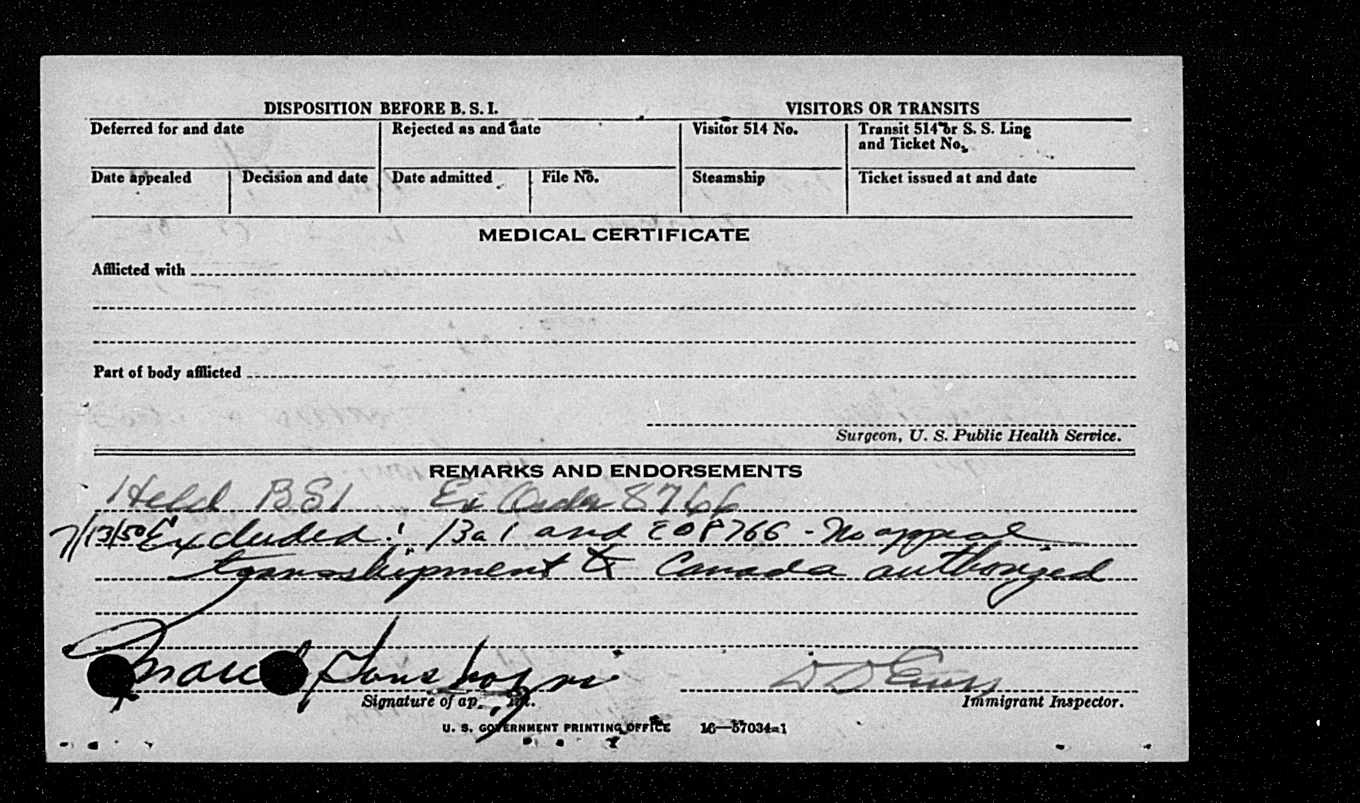 DISPOSITION BEFORE B. S. I.
VISITORS OR TRANSITS
Deferred for and date
Rejected as and date
Visitor 514 No.
Transit 514 or S. S. Line and Ticket No.
Date appealed
Decision and date
Date admitted
File No.
Steamship
Ticket issued at and date
MEDICAL CERTIFICATE
Afflicted with
Part of body afflicted
Surgeon, U. S. Public Health Service.
REMARKS AND ENDORSEMENTS
Held BSI Ex Order 8766
7/13/50 Excluded: 13a1 and EO8766 - No appeal
transshipment to Canada authorized
Signature of
Immigrant Inspector.
U. S. GOVERNMENT PRINTING OFFICE 16—57034-1